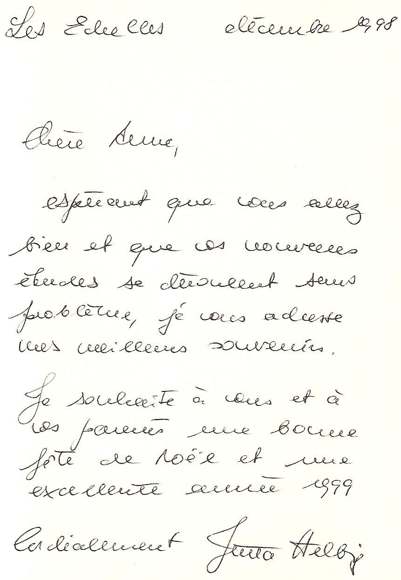 Les Echelles décembre 1998
Chère Anne,
espérant que vous allez
bien et que vos nouvelles
études se déroulent sans
problème, je vous adresse
mes meilleurs souvenirs.
Je souhaite à vous et à
vos parents une bonne
fête de Noël et une
excellente année 1999
Cordialement